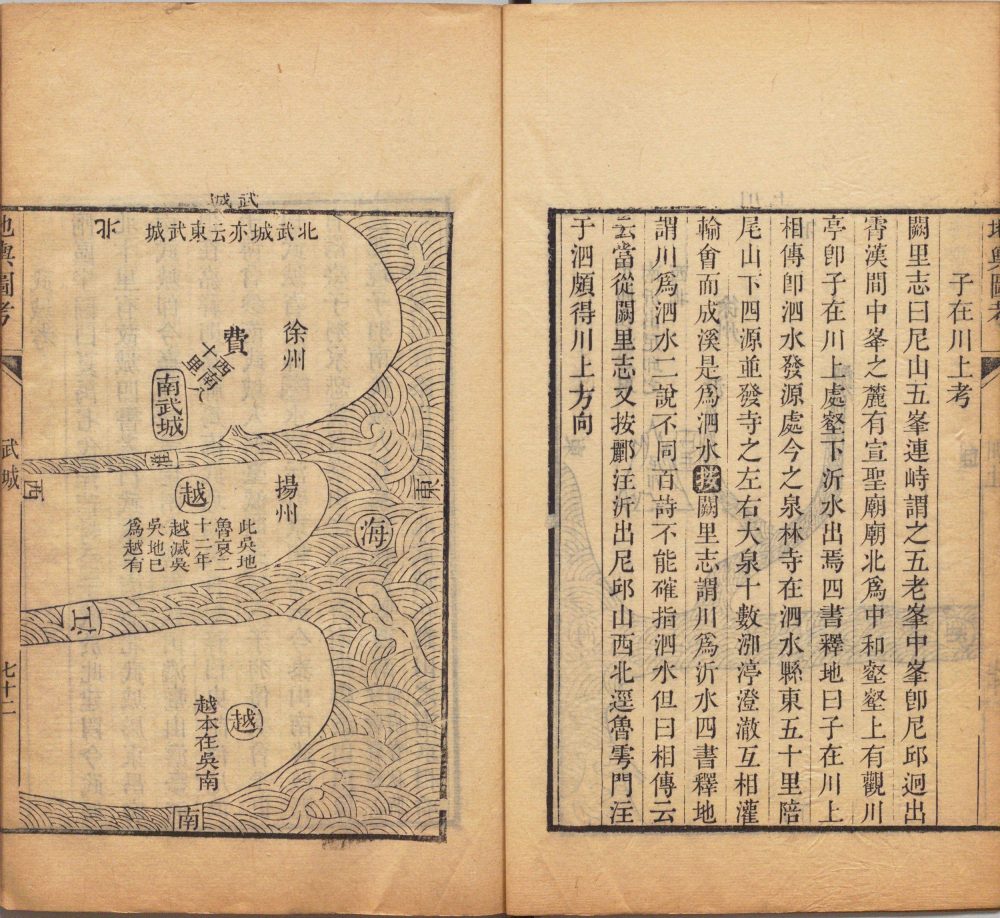 地輿圖考
子在川上考
闕里志曰尼山五峯連峙謂之五老峯中峯卽尼邱迥出
霄漢間中峯之麓有宣聖廟廟北爲中和壑壑上有觀川
亭卽子在川上處壑下沂水出焉四書釋地曰子在川上
相傳卽泗水發源處今之泉林寺在泗水縣東五十里陪
尾山下四源並發寺之左右大泉十數渟澄澈互相灌
輸會而成溪是爲泗水按闕里志謂川爲沂水四書釋地
謂川爲泗水二說不同百詩不能確指泗水但曰相傳云
云當從闕里志又按酈注沂出尼邱山西北逕魯雩門注
于泗頗得川上方向
武城
北武城亦云東武城
北
徐州
費
西南八
十里
南武城
淮
東
西
海
揚州
越
此吳地
魯哀二
十二年
越滅吳
吳地已
爲越有
江
越
越本在吳南
南
地輿圖考
武城
七十二